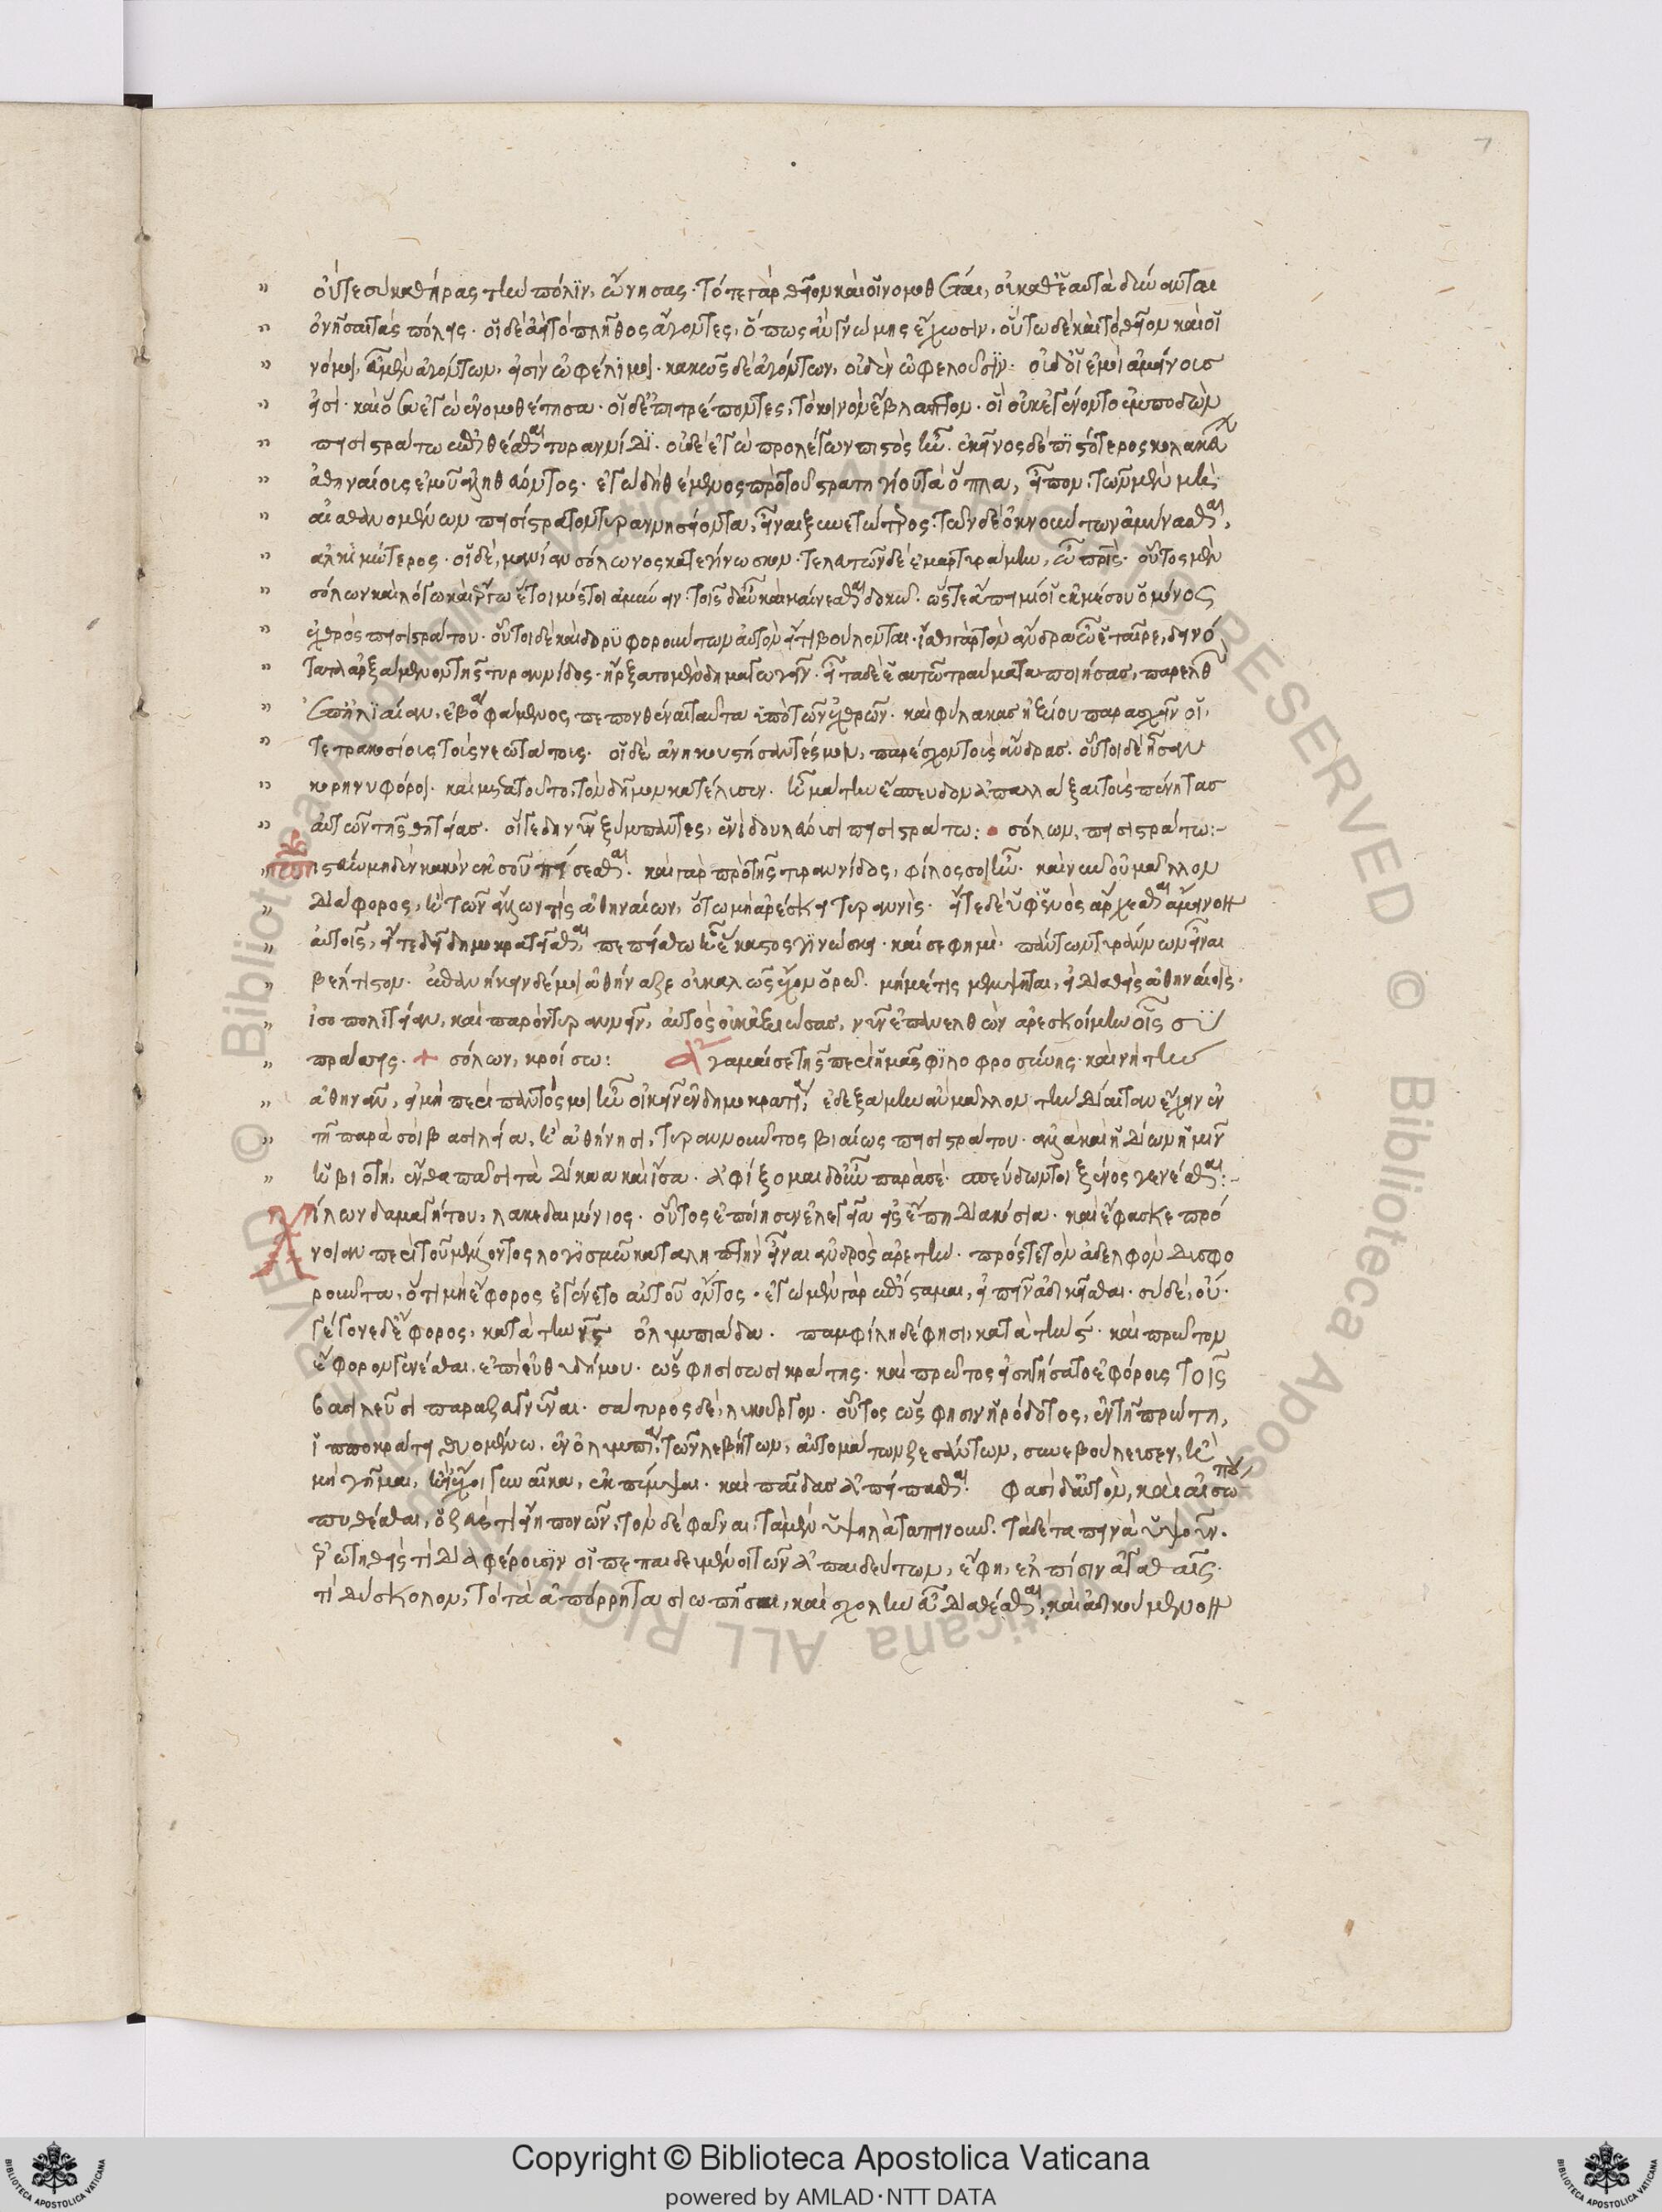 7
οὔτε συ καθήρας τὴν πόλιν, ὤνησας. τό τε γὰρ θεῖον καὶ οἱ νομοθέται, οὐ καθ' ἑαυτὰ δύνανται
ὀνῆσαι τὰς πόλεις. οἱ δὲ ἀεὶ τὸ πλῆθος ἄγοντες, ὅπως ἂν γνώμης ἔχωσιν. οὕτω δὲ καὶ τὸ θεῖον καὶ οἱ
νόμοι, εὖ μὲν ἀγόντων, εἰσὶν ὠφέλιμοι. κακῶς δὲ ἀγόντων, οὐδὲν ὠφελοῦσιν. οὐδ' οἱ ἐμοὶ ἀμείνους
εἰσί. καὶ ὅσα ἐγὼ ἐνομοθέτησα. οἱ δ' ἐπιτρέποντες, τὸ κοινὸν ἔβλαπτον. οἳ οὐκ ἐγένοντο ἐμποδὼν
πεισιστράτῳ ἐπιθέσθαι τυραννίδι. οὐδὲ ἐγὼ προλέγων πιστὸς ἦν. ἐκεῖνος δὲ πιστότερος κολακεύων
ἀθηναίους ἐμοῦ ἀληθεύοντος. ἐγὼ δὴ θέμενος πρὸ τοῦ στρατηγείου τὰ ὅπλα, εἶπον, τῶν μὲν μὴ
αἰσθανομένων πεισίστρατον τυραννησείοντα, εἶναι ξυνετώτερος. τῶν δὲ ὀκνούντων ἀμύνασθαι,
ἀλκιμώτερος. οἱ δὲ, μανίαν σόλωνος κατεγίνωσκον. τελευτῶν δὲ ἐμαρτυράμην, ὦ πατρίς. οὗτος μὲν
σόλων καὶ λόγῳ καὶ ἔργῳ ἕτοιμός τοι ἀμύνειν. τοῖς δ' αὖ καὶ μαίνεσθαι δοκῶ. ὥστε ἄπειμί οἱ ἐκ μέσου ὁ μόνος
ἐχθρὸς πεισιστράτου. οὗτοι δὲ καὶ δορυφορούντων αὐτὸν εἴ τι βούλονται. ἴσθι γὰρ τὸν ἄνδρα ὦ ἑταῖρε, δεινό
τατα ἁρξάμενον τῆς τυραννίδος. ἤρξατο μὲν δημαγωγεῖν. εἶτα δὲ ἑαυτῷ τραύματα ποιήσας, παρελθ
ἐφ' ἡλιαίαν, ἐβόα φάμενος πεπονθέναι ταῦτα ὑπὸ τῶν ἐχθρῶν. καὶ φύλακας ἠξίου παρασχεῖν οἱ,
τετρακοσίους τοὺς νεωτάτους. οἱ δὲ ἀνηκουστήσαντές μου, παρέσχον τοὺς ἄνδρας. οὗτοι δὲ ἦσαν
κορηνυφόροι. καὶ μετὰ τοῦτο, τὸν δῆμον κατέλυσεν. ἦ μάτην ἔσπευδον ἀπαλλάξαι τοὺς πένητας
αὐτῶν τῆς θητείας. οἵ γε δὴ νῦν ξύμπαντες, ἑνὶ δουλεύουσι πεισιστράτῳ: • σόλων, πεισιστράτῳ:-
πιστεύω μηδὲν κακὸν ἐκ σοῦ πείσεσθαι. καὶ γὰρ πρὸ τῆς τυραννίδος, φίλος σοι ἦν. καὶ νῦν οὐ μᾶλλον
διάφορος, ἢ τῶν ἄλλων τις ἀθηναίων, ὅτῳ μὴ ἀρέσκει τυραννὶς. εἴτε δὲ ὑφ' ἑνὸς ἄρχεσθαι ἄμεινον
αὐτοῖς, εἴτε δεῖ δημοκρατεῖσθαι, πεπείσθω ᾗ ἕκαστος γινώσκει. καί σε φημὶ. πάντων τυράννων εἶναι
βέλτιστον. ἐπανήκειν δέ μοι ἀθήναζε οὐ καλῶς ἔχον ὁρῶ. μή με τις μέμψηται, εἰ διαθεὶς ἀθηναίοις
ἰσοπολιτείαν, καὶ παρὸν τυραννεῖν, αὐτὸς οὐκ ἀξιώσας, νῦν ἐπανελθὼν ἀρεσκοίμην οἷς σὺ
πράσσεις. + σόλων, κροίσῳ: ἄγαμαί σε τῆς περὶ ἡμᾶς φιλοφροσύνης. καὶ νὴ τὴν
ἀθηνᾶν, εἰ μὴ περὶ παντός μοι ἦν οἰκεῖν ἐν δημοκρατίᾳ, ἐδεξάμην ἂν μᾶλλον τὴν δίαιταν ἔχειν ἐν
τῇ παρὰ σοὶ βασιλείᾳ, ἢ ἀθήνησι, τυραννοῦντος βιαίως πεισιστράτου. ἀλλὰ καὶ ἡδίων ἡμῖν
ἡ βιοτὴ, ἔνθα πᾶσι τὰ δίκαια καὶ ἴσα. ἀφίξομαι δ' οὖν παρὰ σὲ. σπεύδων τοι ξένος γενέσθαι:-
Χίλων δαμαγήτου, λακεδαιμόνιος. οὗτος ἐποίησεν ἐλεγεῖα εἰς ἔπη διακόσια. καὶ ἔφασκε πρό
νοιαν περὶ τοῦ μέλλοντος λογισμῷ καταληπτὴν εἶναι ἀνδρὸς ἀρετήν. πρός τε τὸν ἀδελφὸν δυσφο
ροῦντα, ὅτι μὴ ἔφορος ἐγένετο αὐτοῦ ὄντος. ἐγὼ μὲν γὰρ ἐπίσταμαι, εἶπεν ἀδικεῖσθαι. σὺ δὲ, οὔ.
γέγονε δὲ ἔφορος, κατὰ τὴν νς ὀλυμπιάδα. παμφίλη δέ φησι, κατὰ τὴν ς. καὶ πρῶτον
ἔφορον γενέσθαι, ἐπὶ εὐθυδήμου. ὥς φησι σωσικράτης. καὶ πρῶτος εἰσηγήσατο ἐφόρους τοῖς
βασιλεῦσι παραζευγνύναι. σάτυρος δὲ, λυκοῦργον. οὗτος ὥς φησιν ἡρόδοτος, ἐν τῇ πρώτῃ,
ἱπποκράτει θυομένῳ ἐν ὀλυμπίᾳ, τῶν λεβήτων, αὐτομάτων ζεσάντων, συνεβούλευσεν, ἢ
μὴ γῆμαι, ἢ εἰ ἔχοι γυναῖκα, ἐκπέμψαι. καὶ παῖδας ἀπείπασθαι. φασὶ δ' αὐτὸν, καὶ αἰσώπου
πυθέσθαι, ὁ ζεὺς τί εἴη ποιῶν, τὸν δὲ φάναι, τὰ μὲν ὑψηλὰ ταπεινοῦν. τὰ δὲ ταπεινὰ ὑψοῦν.
ἐρωτηθεὶς τί διαφέρουσιν οἱ πεπαιδευμένοι τῶν ἀπαιδεύτων, ἔφη, ἐλπίσιν ἀγαθαῖς.
τί δύσκολον, τὸ τὰ ἀπόρρητα σιωπῆσαι, καὶ σχολὴν εὖ διαθέσθαι, καὶ ἀδικούμενον
Copyright © Biblioteca Apostolica Vaticana
powered by AMLAD·NTT DATA